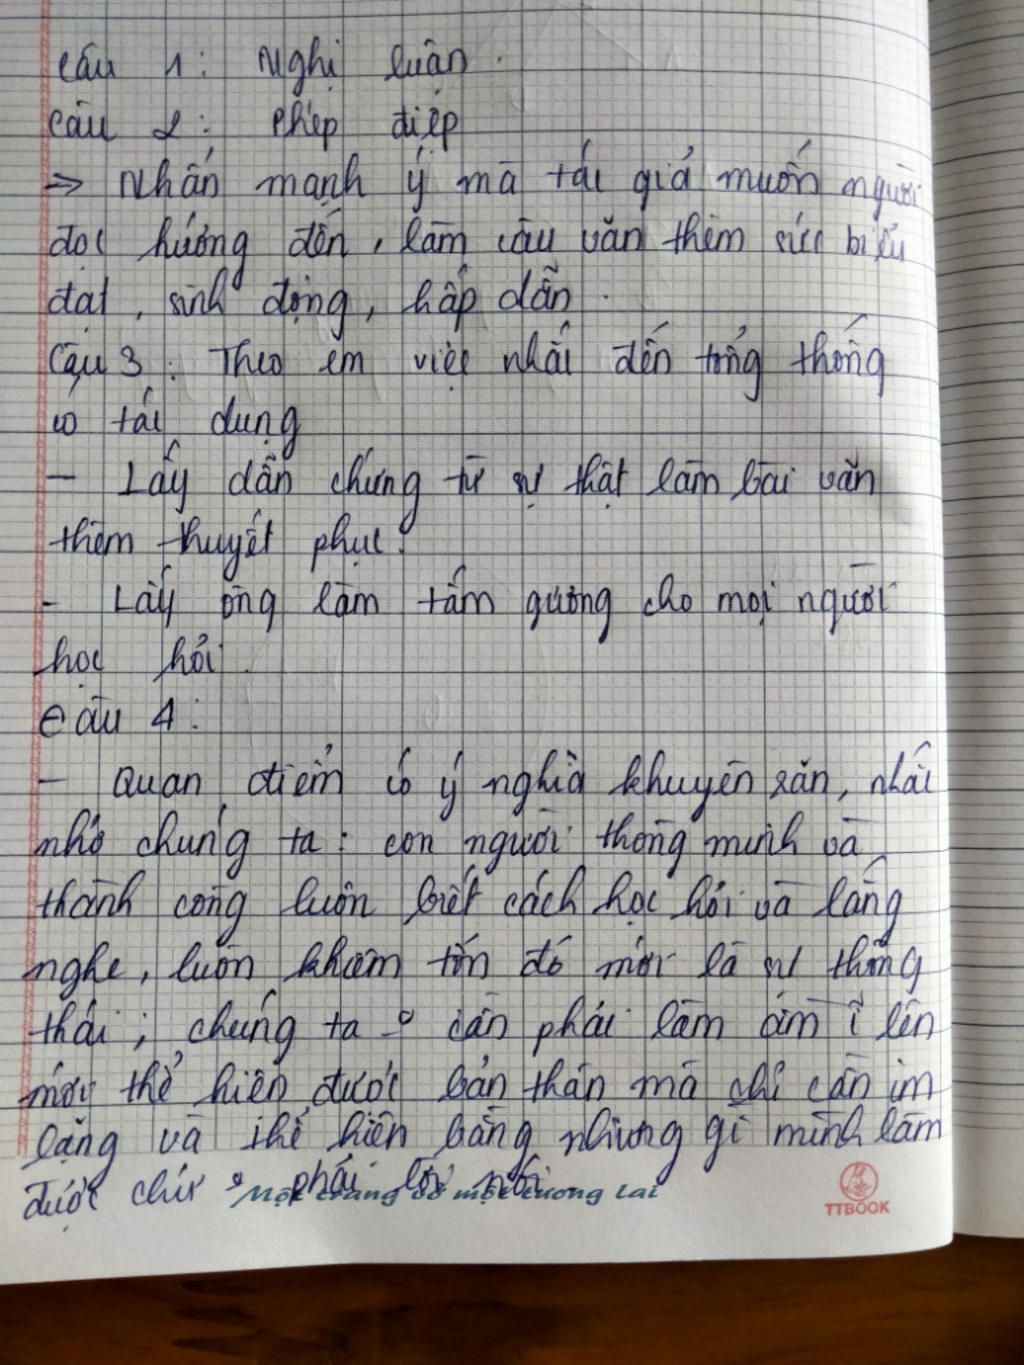 Câu 1: Nghị luận.
Câu 2: Phép điệp
=> Nhấn mạnh ý mà tác giả muốn người
đọc hướng đến, làm câu văn thêm sức biểu
đạt, sinh động, hấp dẫn.
Câu 3: Theo em việc nhắc đến tổng thống
có tác dụng
- Lấy dẫn chứng từ sự thật làm bài văn
thêm thuyết phục.
- Lấy ông làm tấm gương cho mọi người
học hỏi.
Câu 4:
- Quan điểm có ý nghĩa khuyên răn, nhắc
nhở chúng ta: con người thông minh và
thành công luôn biết cách học hỏi và lắng
nghe, luôn khiêm tốn đó mới là sự thông
thái; chúng ta o cần phải làm ầm ĩ lên
mới thể hiện được bản thân mà chỉ cần im
lặng và thể hiện bằng những gì mình làm
được chứ o phải lời nói
Một trang vở một tương lai
TTBOOK